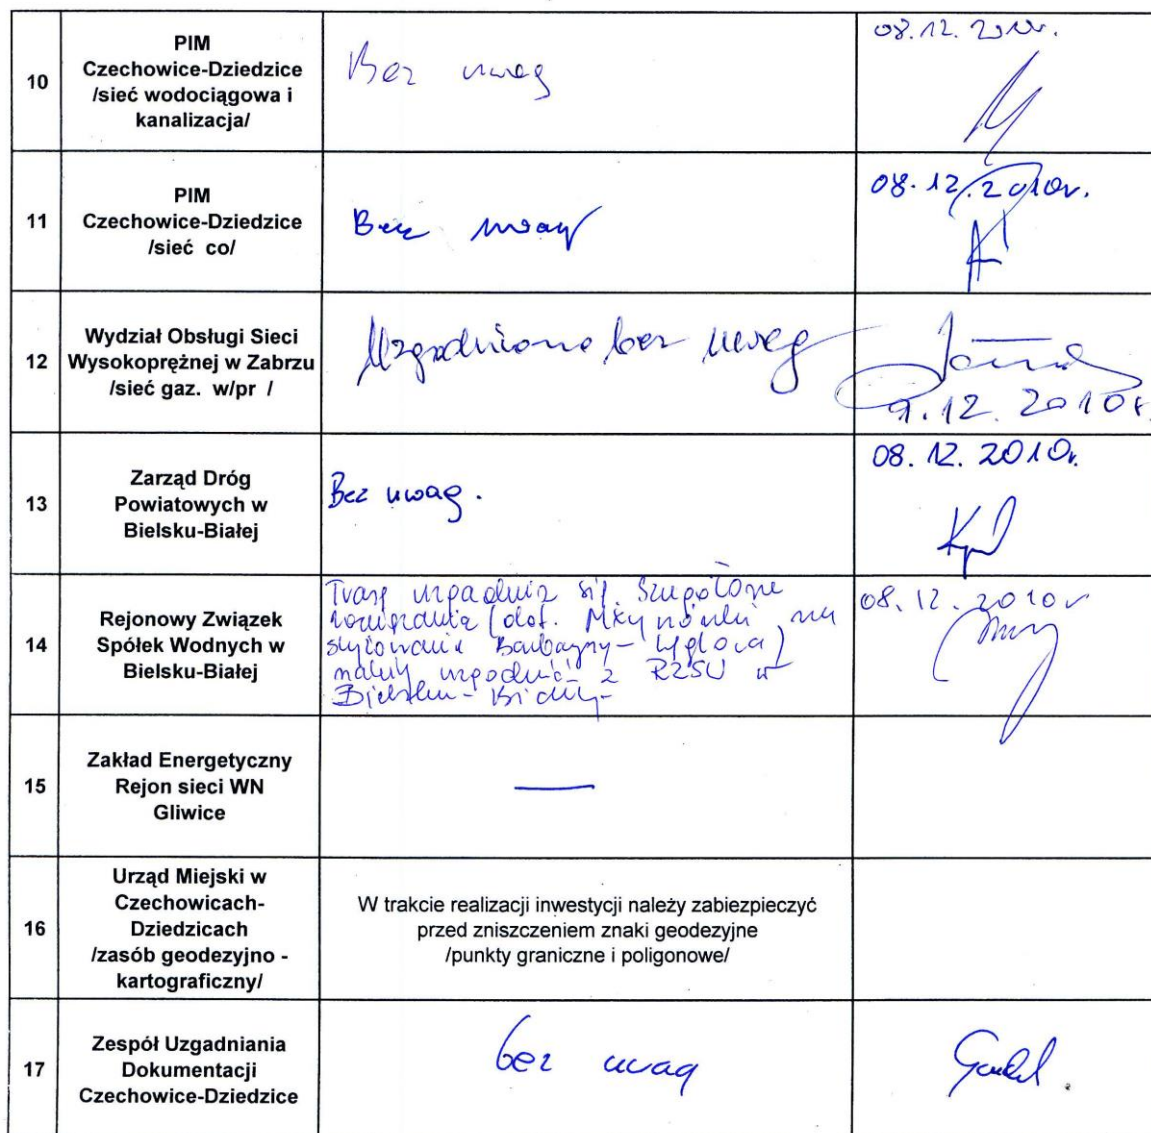 10
PIM
Czechowice-Dziedzice
/sieć wodociągowa i
kanalizacja/
Bez uwag
08.12.2010r.
11
PIM
Czechowice-Dziedzice
/sieć co/
Bez uwag
08.12.2010r.
12
Wydział Obsługi Sieci
Wysokoprężnej w Zabrzu
/sieć gaz. w/pr /
Uzgodniono bez uwag
9.12.2010r.
13
Zarząd Dróg
Powiatowych w
Bielsku-Białej
Bez uwag.
08.12.2010r.
14
Rejonowy Związek
Spółek Wodnych w
Bielsku-Białej
Trasę uzgadnia się. Szczegółowe
rozwiązania (dot. Młynówki na
Barbary-
należy uzgodnić z RZSW w
Bielsku-Białej-
08.12.2010r
15
Zakład Energetyczny
Rejon sieci WN
Gliwice
16
Urząd Miejski w
Czechowicach-
Dziedzicach
/zasób geodezyjno -
kartograficzny/
W trakcie realizacji inwestycji należy zabiezpieczyć
przed zniszczeniem znaki geodezyjne
/punkty graniczne i poligonowe/
17
Zespół Uzgadniania
Dokumentacji
Czechowice-Dziedzice
bez uwag